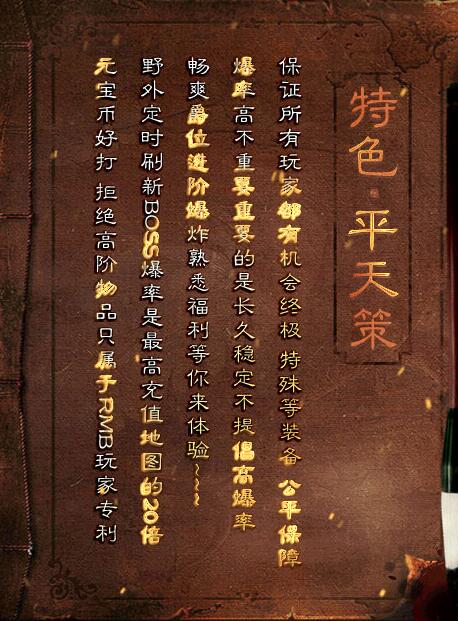 特色·平天策
保证所有玩家都有机会终极 特殊等装备 公平保障
爆率高不重要重要的是长久稳定不提倡高爆率
畅爽爵位进阶爆炸熟悉福利等你来体验~~~~
野外定时刷新BOSS爆率是最高充值地图的20倍
元宝币好打 拒绝高阶物品只属于RMB玩家专利